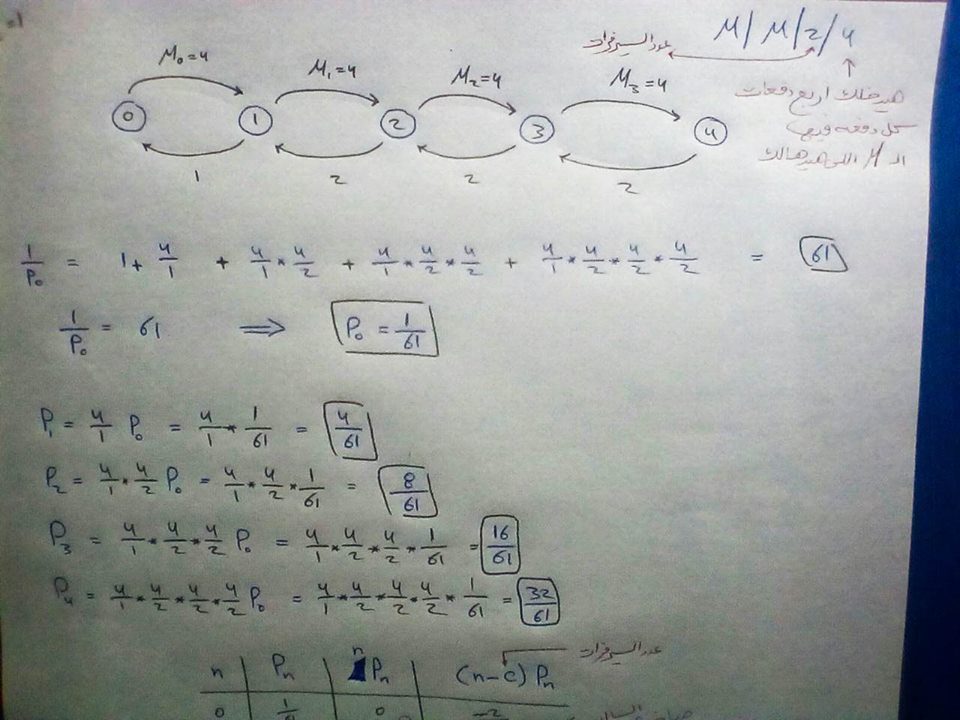 M/M/2/4
عدد السيرفرات
هيدخلك اربع دفعات
كل دفعه فيها
الـ M اللى
M₀=4 M₁=4 M₂=4 M₃=4
0 1 2 3 4
1 2 2 2
1/P₀ = 1 + 4/1 + 4/1 * 4/2 + 4/1 * 4/2 * 4/2 + 4/1 * 4/2 * 4/2 * 4/2 = 61
1/P₀ = 61 ⟹ P₀ = 1/61
P₁ = 4/1 P₀ = 4/1 * 1/61 = 4/61
P₂ = 4/1 * 4/2 P₀ = 4/1 * 4/2 * 1/61 = 8/61
P₃ = 4/1 * 4/2 * 4/2 P₀ = 4/1 * 4/2 * 4/2 * 1/61 = 16/61
P₄ = 4/1 * 4/2 * 4/2 * 4/2 P₀ = 4/1 * 4/2 * 4/2 * 4/2 * 1/61 = 32/61
عدد السيرفرات
n Pₙ n Pₙ (n-c) Pₙ
0 1/61 0 -2